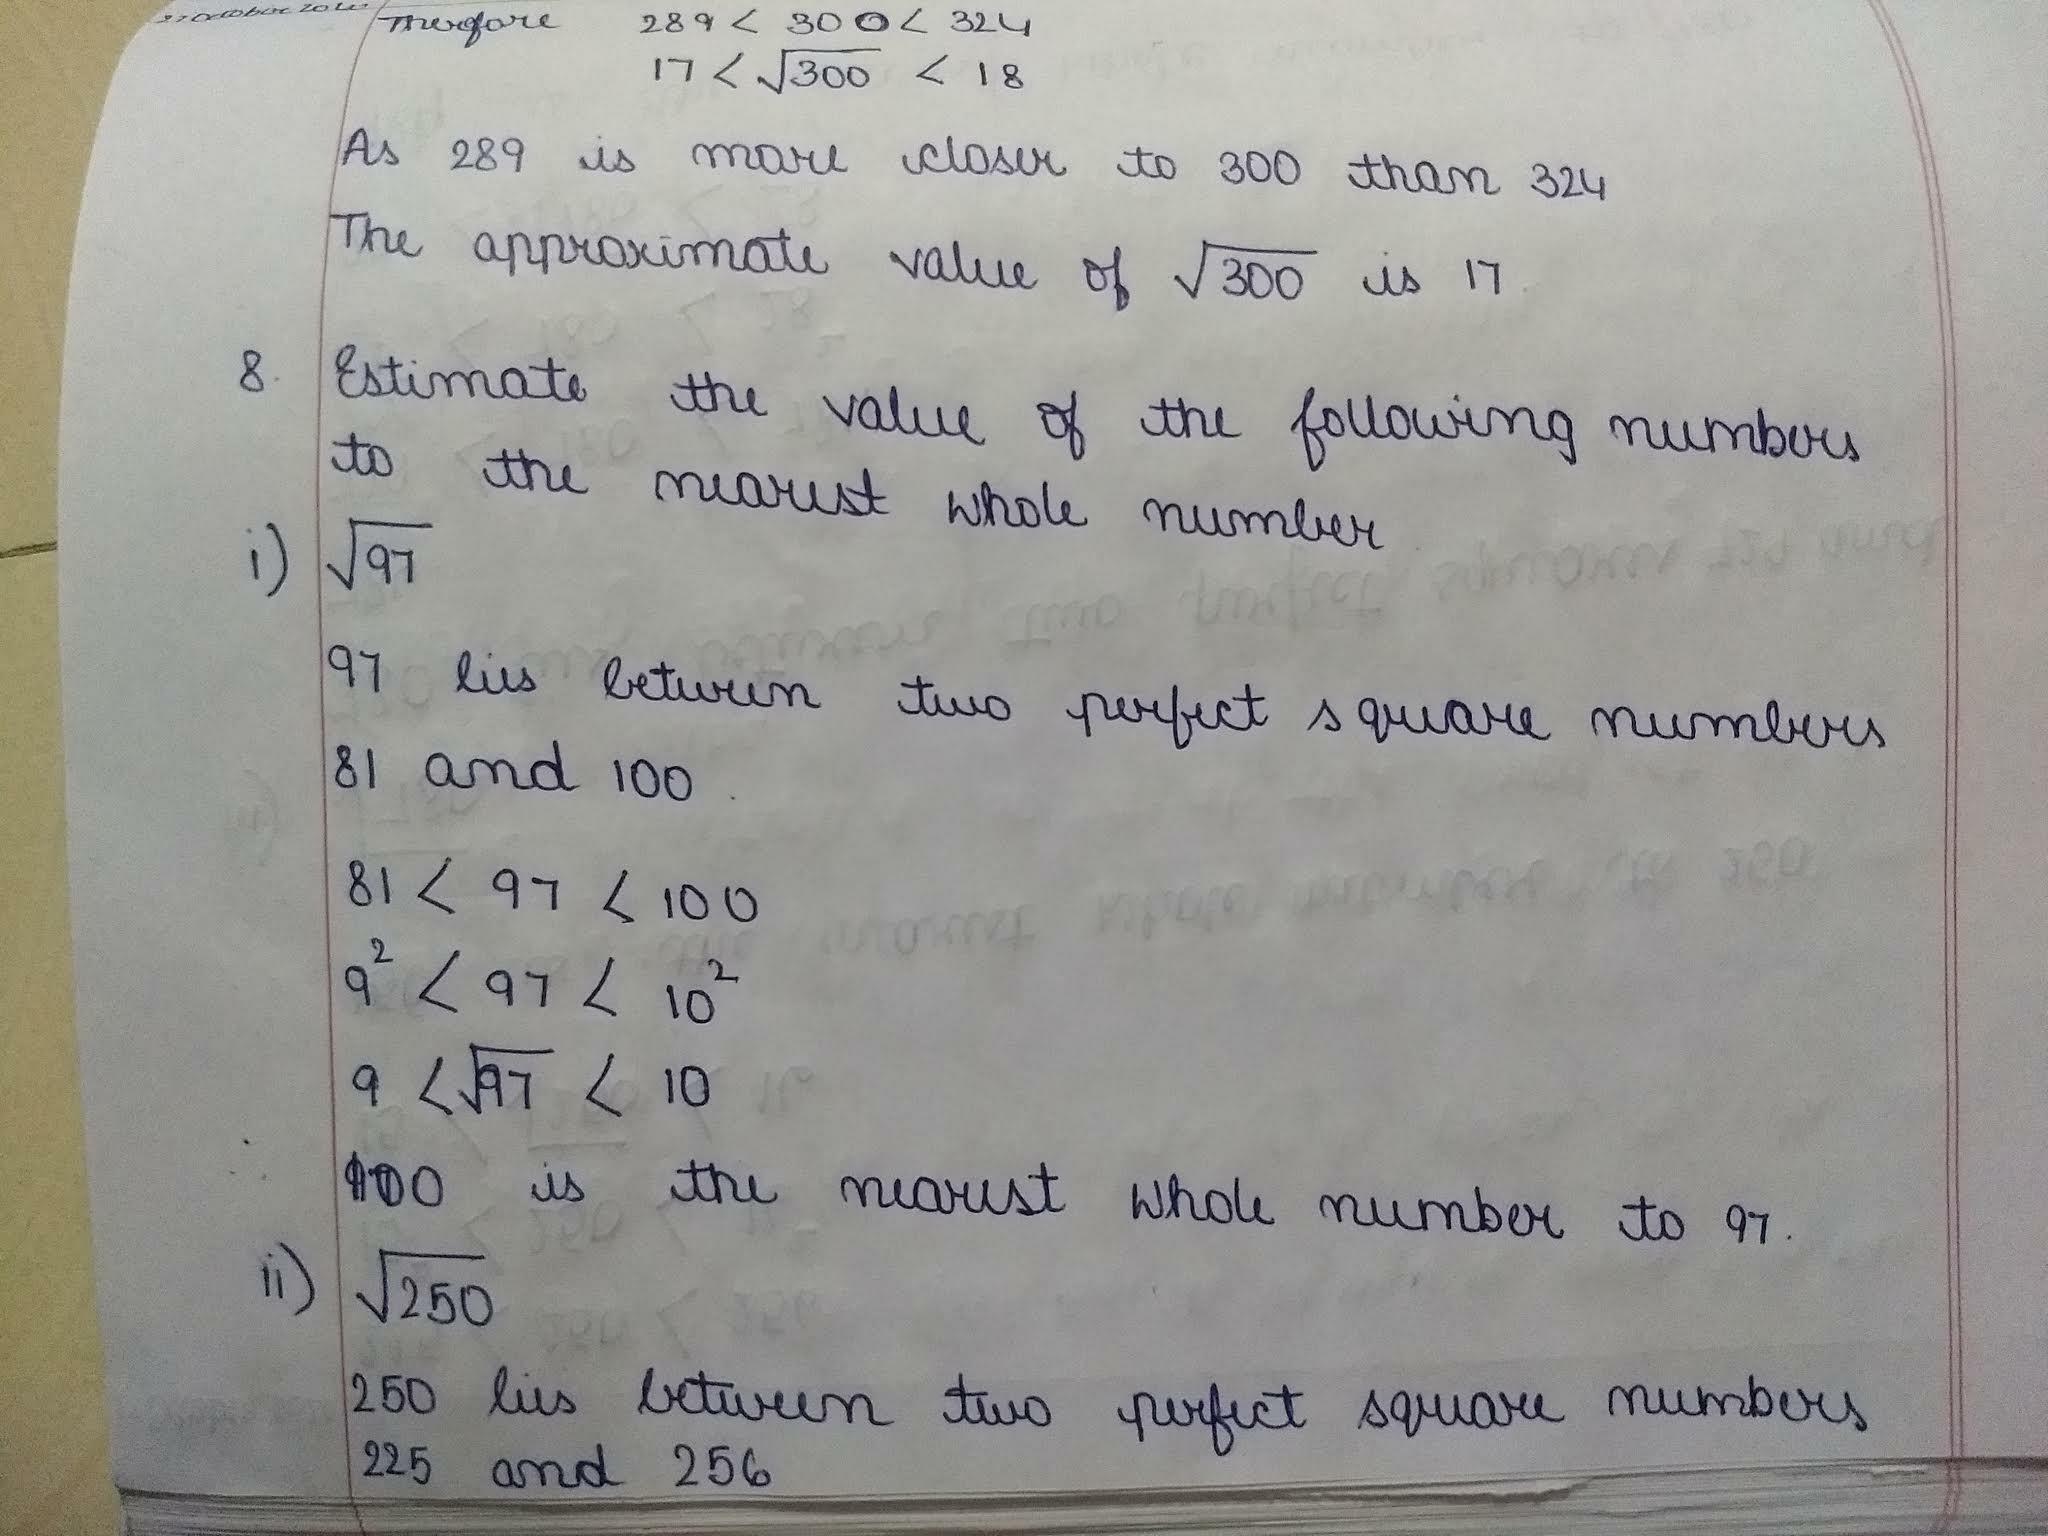 Therefore 289 < 300 < 324
17 < √300 < 18
As 289 is more closer to 300 than 324
The approximate value of √300 is 17.
8. Estimate the value of the following numbers
to the nearest whole number
i) √97
97 lies between two perfect square numbers
81 and 100.
81 < 97 < 100
9² < 97 < 10²
9 < √97 < 10
100 is the nearest whole number to 97.
ii) √250
250 lies between two perfect square numbers
225 and 256